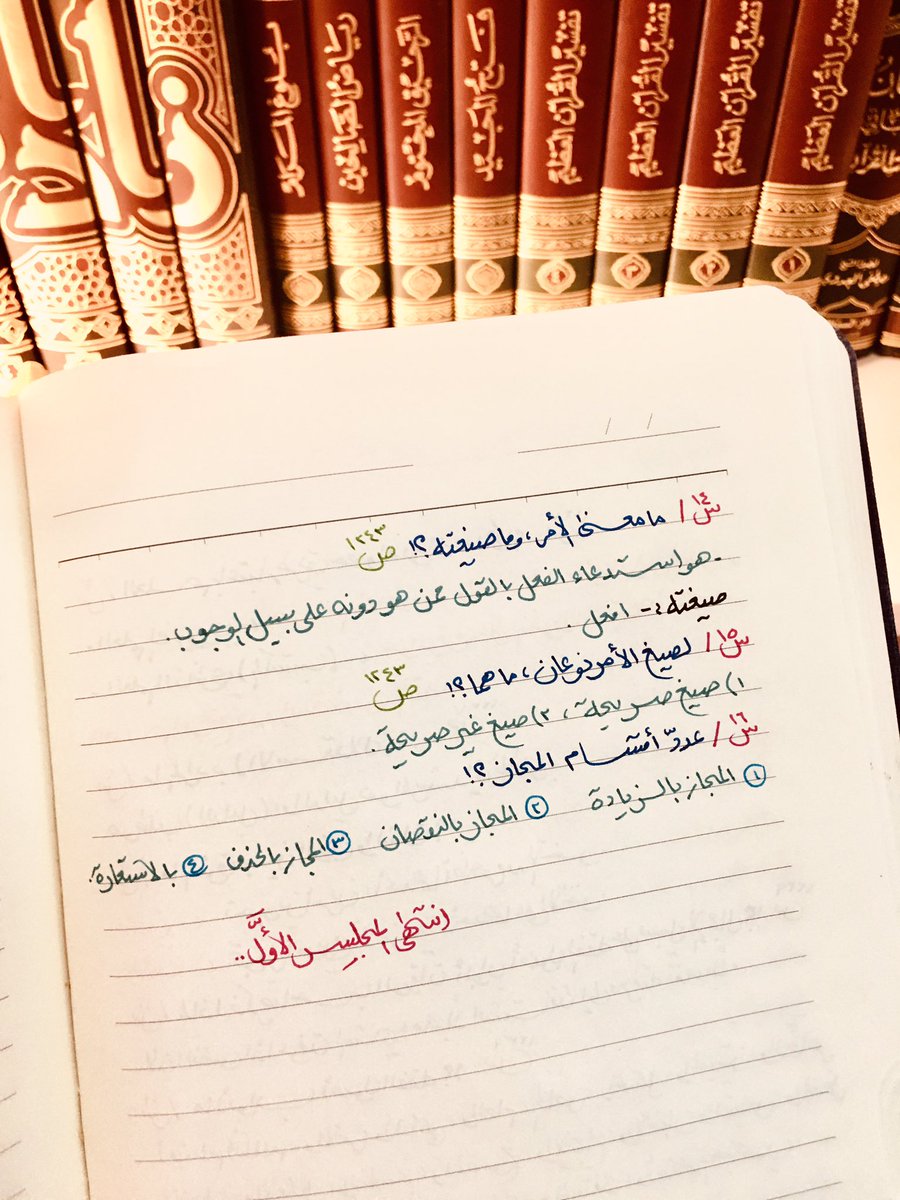 بلوغ المرام
رياض الصالحين
الرحيق المختوم
فتح المجيد
تفسير القرآن العظيم
تفسير القرآن العظيم
تفسير القرآن العظيم
تفسير القرآن العظيم
٤ ٣ ٢ ١
/ /
س١٤/ ما معنى الأمر، وما صيغته؟! ص ١٢٤٣
- هو استدعاء الفعل بالقول ممن هو دونه على سبيل الوجوب.
صيغته :- افعل.
س١٥/ لصيغ الأمر نوعان، ما هما؟! ص ١٢٤٣
١) صيغ صريحة، ٢) صيغ غير صريحة.
س١٦/ عدد أقسام المجاز؟!
١ المجاز بالزيادة ٢ المجاز بالنقصان ٣ المجاز بالحذف ٤ بالاستعارة.
انتهى المجلس الأوَّل..